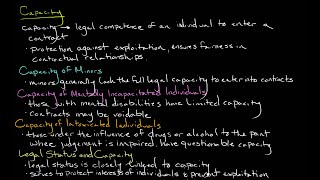 Capacity
capacity → legal competence of an individual to enter a
contract
• protection against exploitation, ensures fairness in
contractual relationships.
Capacity of Minors
• minors generally lack the full legal capacity to enter into contracts
Capacity of Mentally Incapacitated Individuals
• those with mental disabilities have limited capacity
• contracts may be voidable
Capacity of Intoxicated Individuals
• those under the influence of drugs or alcohol to the point
where judgement is impaired, have questionable capacity
Legal Status and Capacity
• legal status is closely linked to capacity
• serves to protect interests of individuals & prevent exploitation